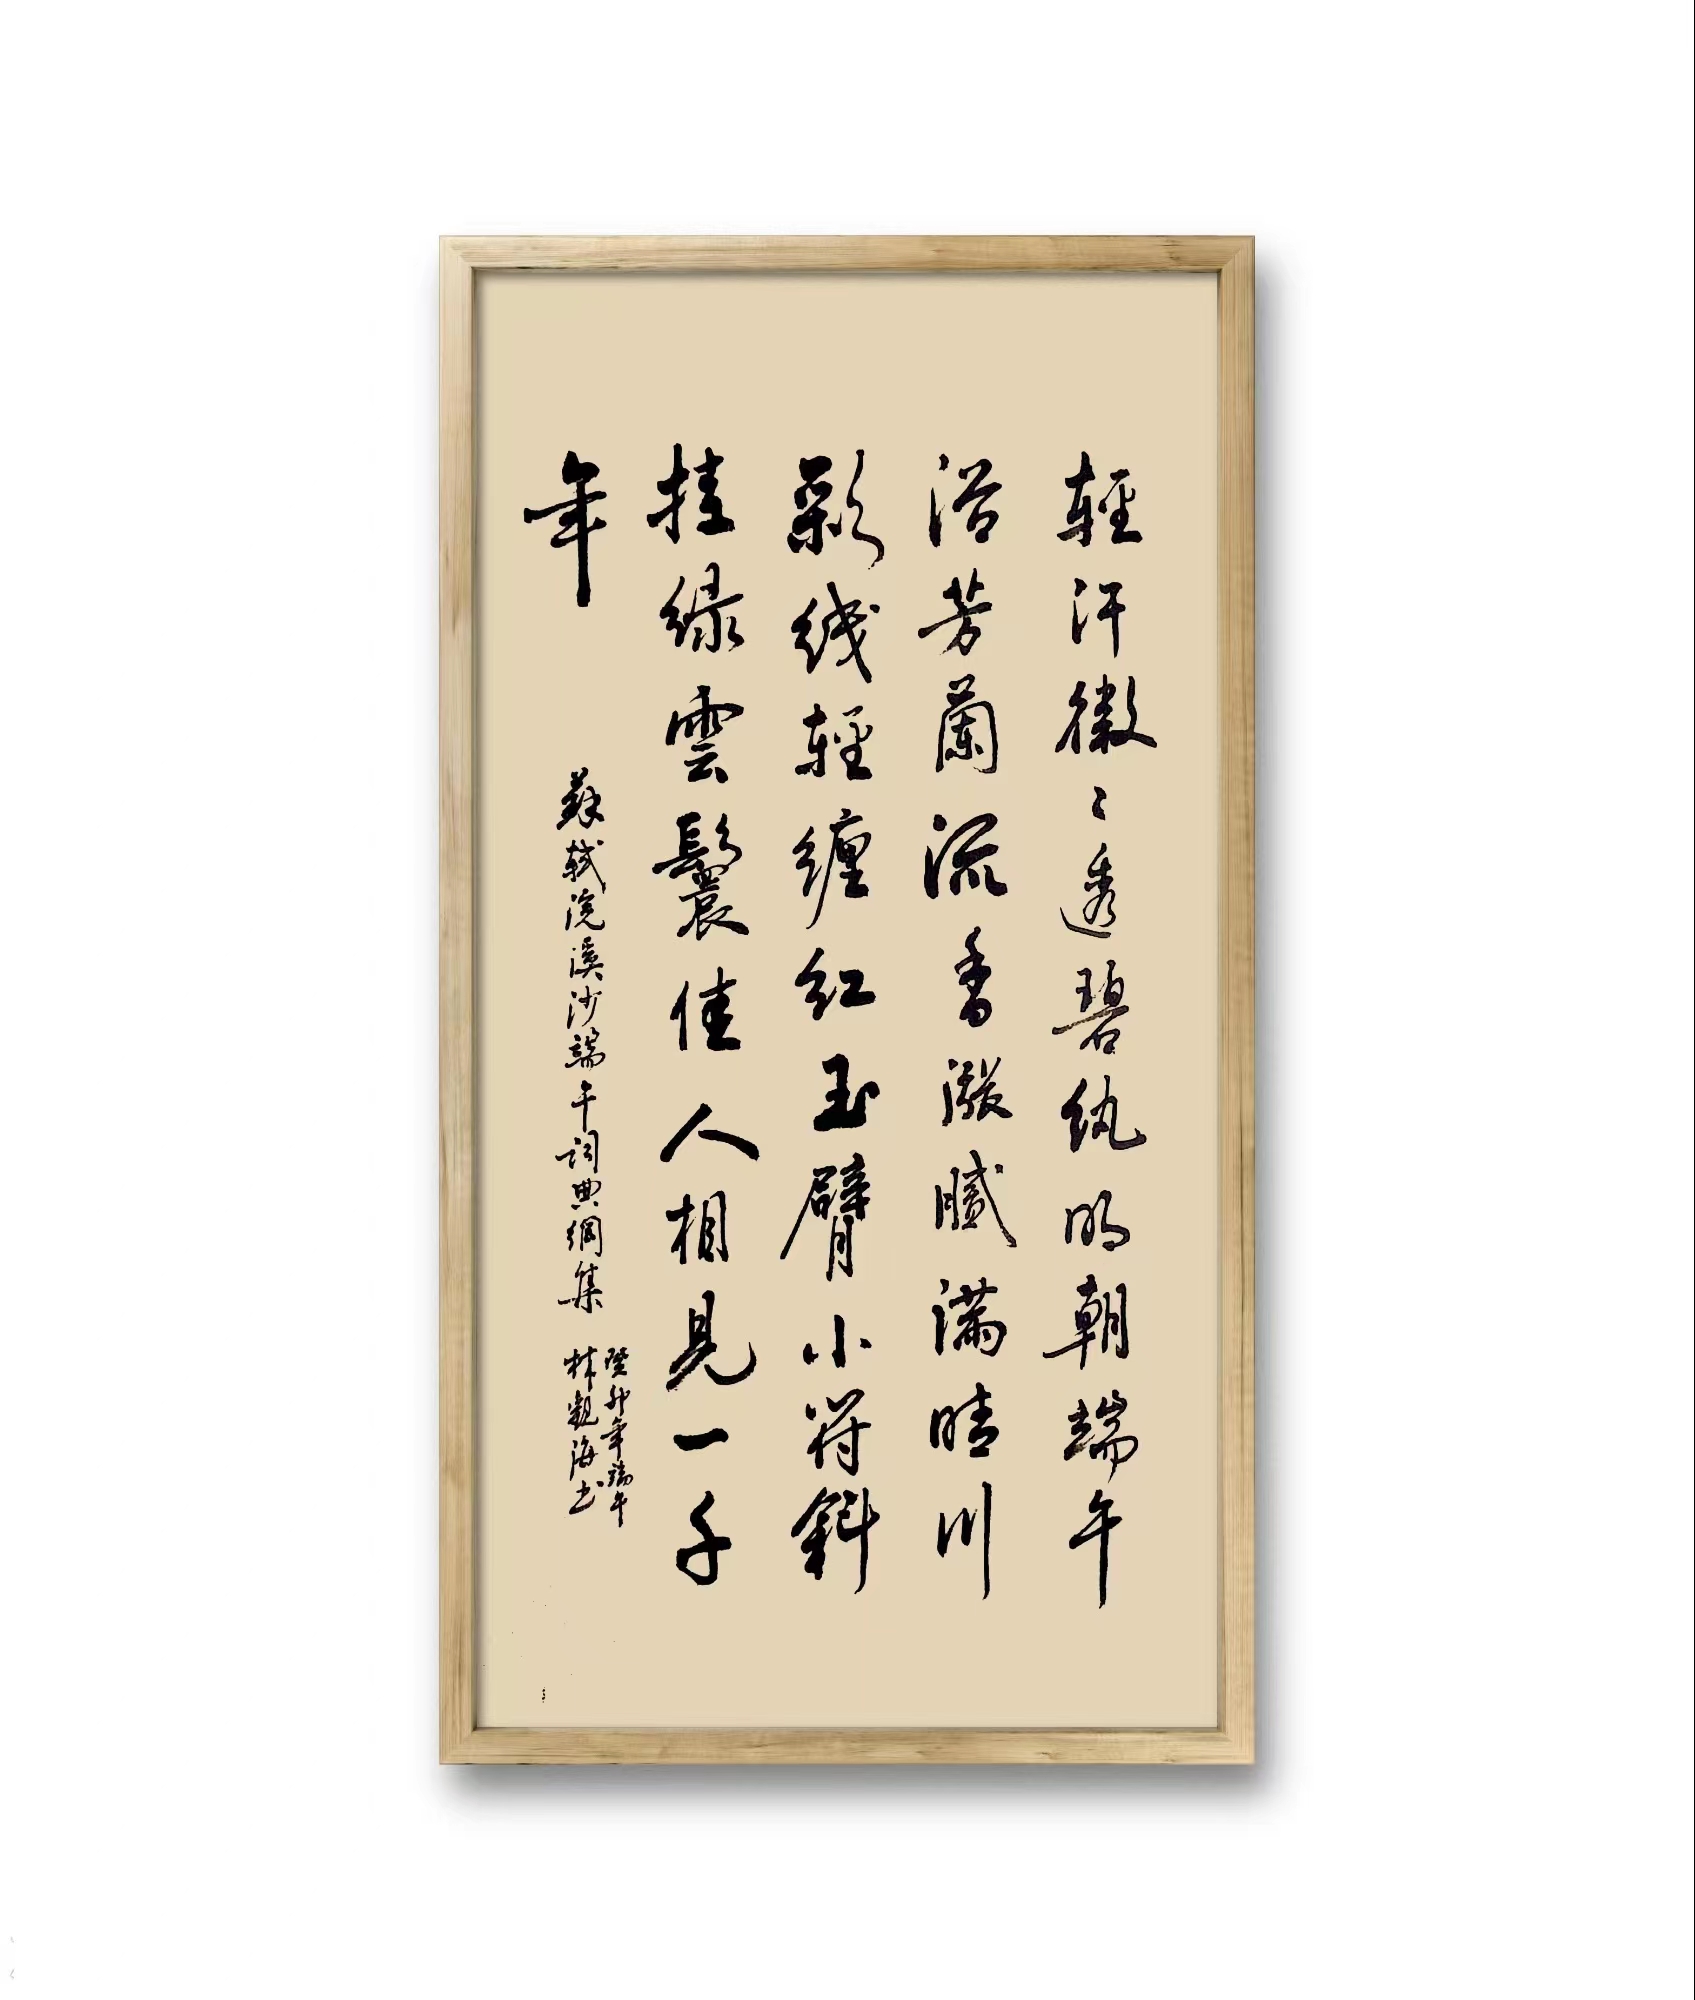 輕汗微〻透碧紈明朝端午
浴芳蘭流香漲膩滿晴川
彩线輕缠红玉臂小符斜
挂绿雲鬟佳人相見一千
年
蘇軾浣溪沙端午词典綢集
癸卯年端午
林觀海书